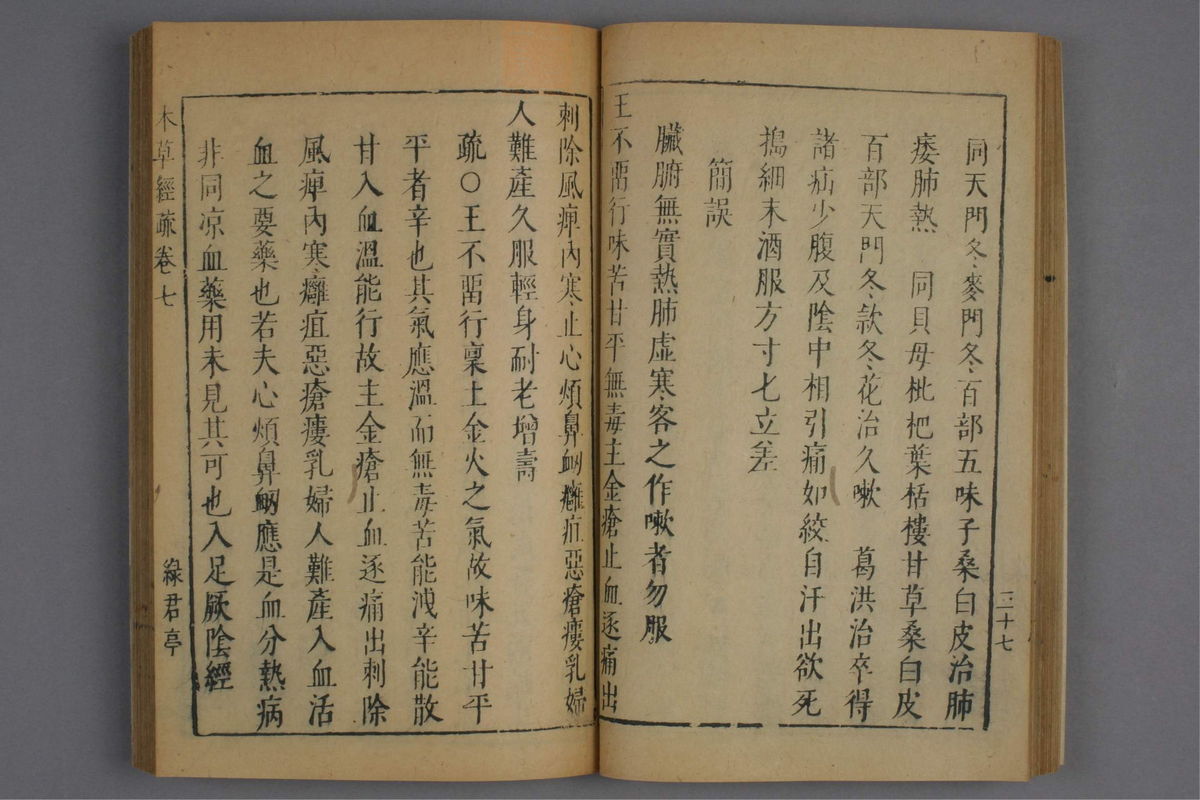 同天門冬麥門冬百部五味子桑白皮治肺
痿肺熱　同貝母枇杷葉栝樓甘草桑白皮
百部天門冬款冬花治久嗽　葛洪治卒得
諸疝少腹及陰中相引痛如絞自汗出欲死
搗細末酒服方寸七立差
簡誤
臟腑無實熱肺虛寒客之作嗽者勿服
王不畱行味苦甘平無毒主金瘡止血逐痛出
三十七
刺除風痺內寒止心煩鼻衂癰疽惡瘡瘻乳婦
人難產久服輕身耐老增壽
疏○王不畱行稟土金火之氣故味苦甘平
平者辛也其氣應溫而無毒苦能洩辛能散
甘入血溫能行故主金瘡止血逐痛出刺除
風痺內寒癰疽惡瘡瘻乳婦人難產入血活
血之要藥也若夫心煩鼻衂應是血分熱病
非同凉血藥用未見其可也入足厥陰經
本草經疏卷七
綠君亭